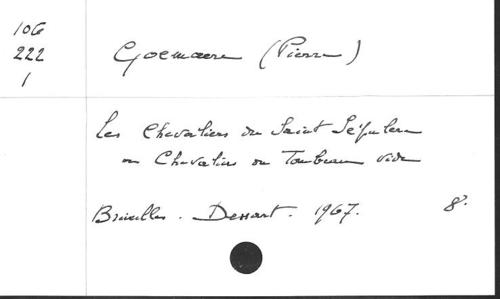 106
222
1
Goemaere (Pierre)
Les Chevaliers du Saint Sépulcre
ou Chevaliers du Tombeau vide
Bruxelles. Dessart. 1967. 8°.